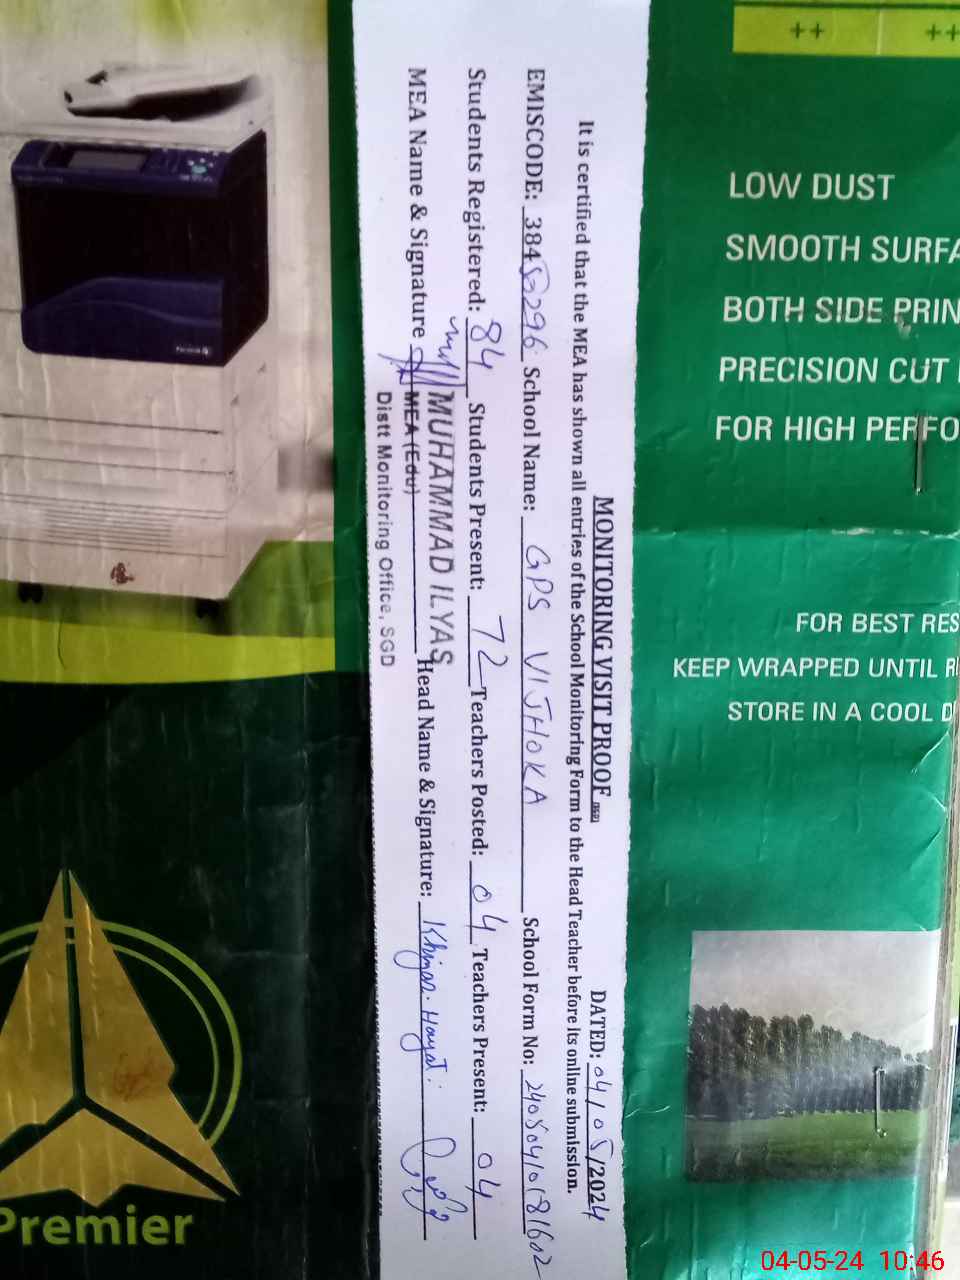 MONITORING VISIT PROOF DATED: 04/05/2024
It is certified that the MEA has shown all entries of the School Monitoring Form to the Head Teacher before its online submission.
EMISCODE: 38450296 School Name: GPS VIJHOKA School Form No:
Students Registered: 84 Students Present: 72 Teachers Posted: 04 Teachers Present: 04
MEA Name & Signature MUHAMMAD ILYAS Head Name & Signature: Hayat
MEA (Edu)
Distt Monitoring Office, SGD
++ ++
LOW DUST
SMOOTH
BOTH SIDE
PRECISION CUT
FOR HIGH
FOR BEST
KEEP WRAPPED UNTIL
STORE IN A COOL
Premier
04-05-24 10:46